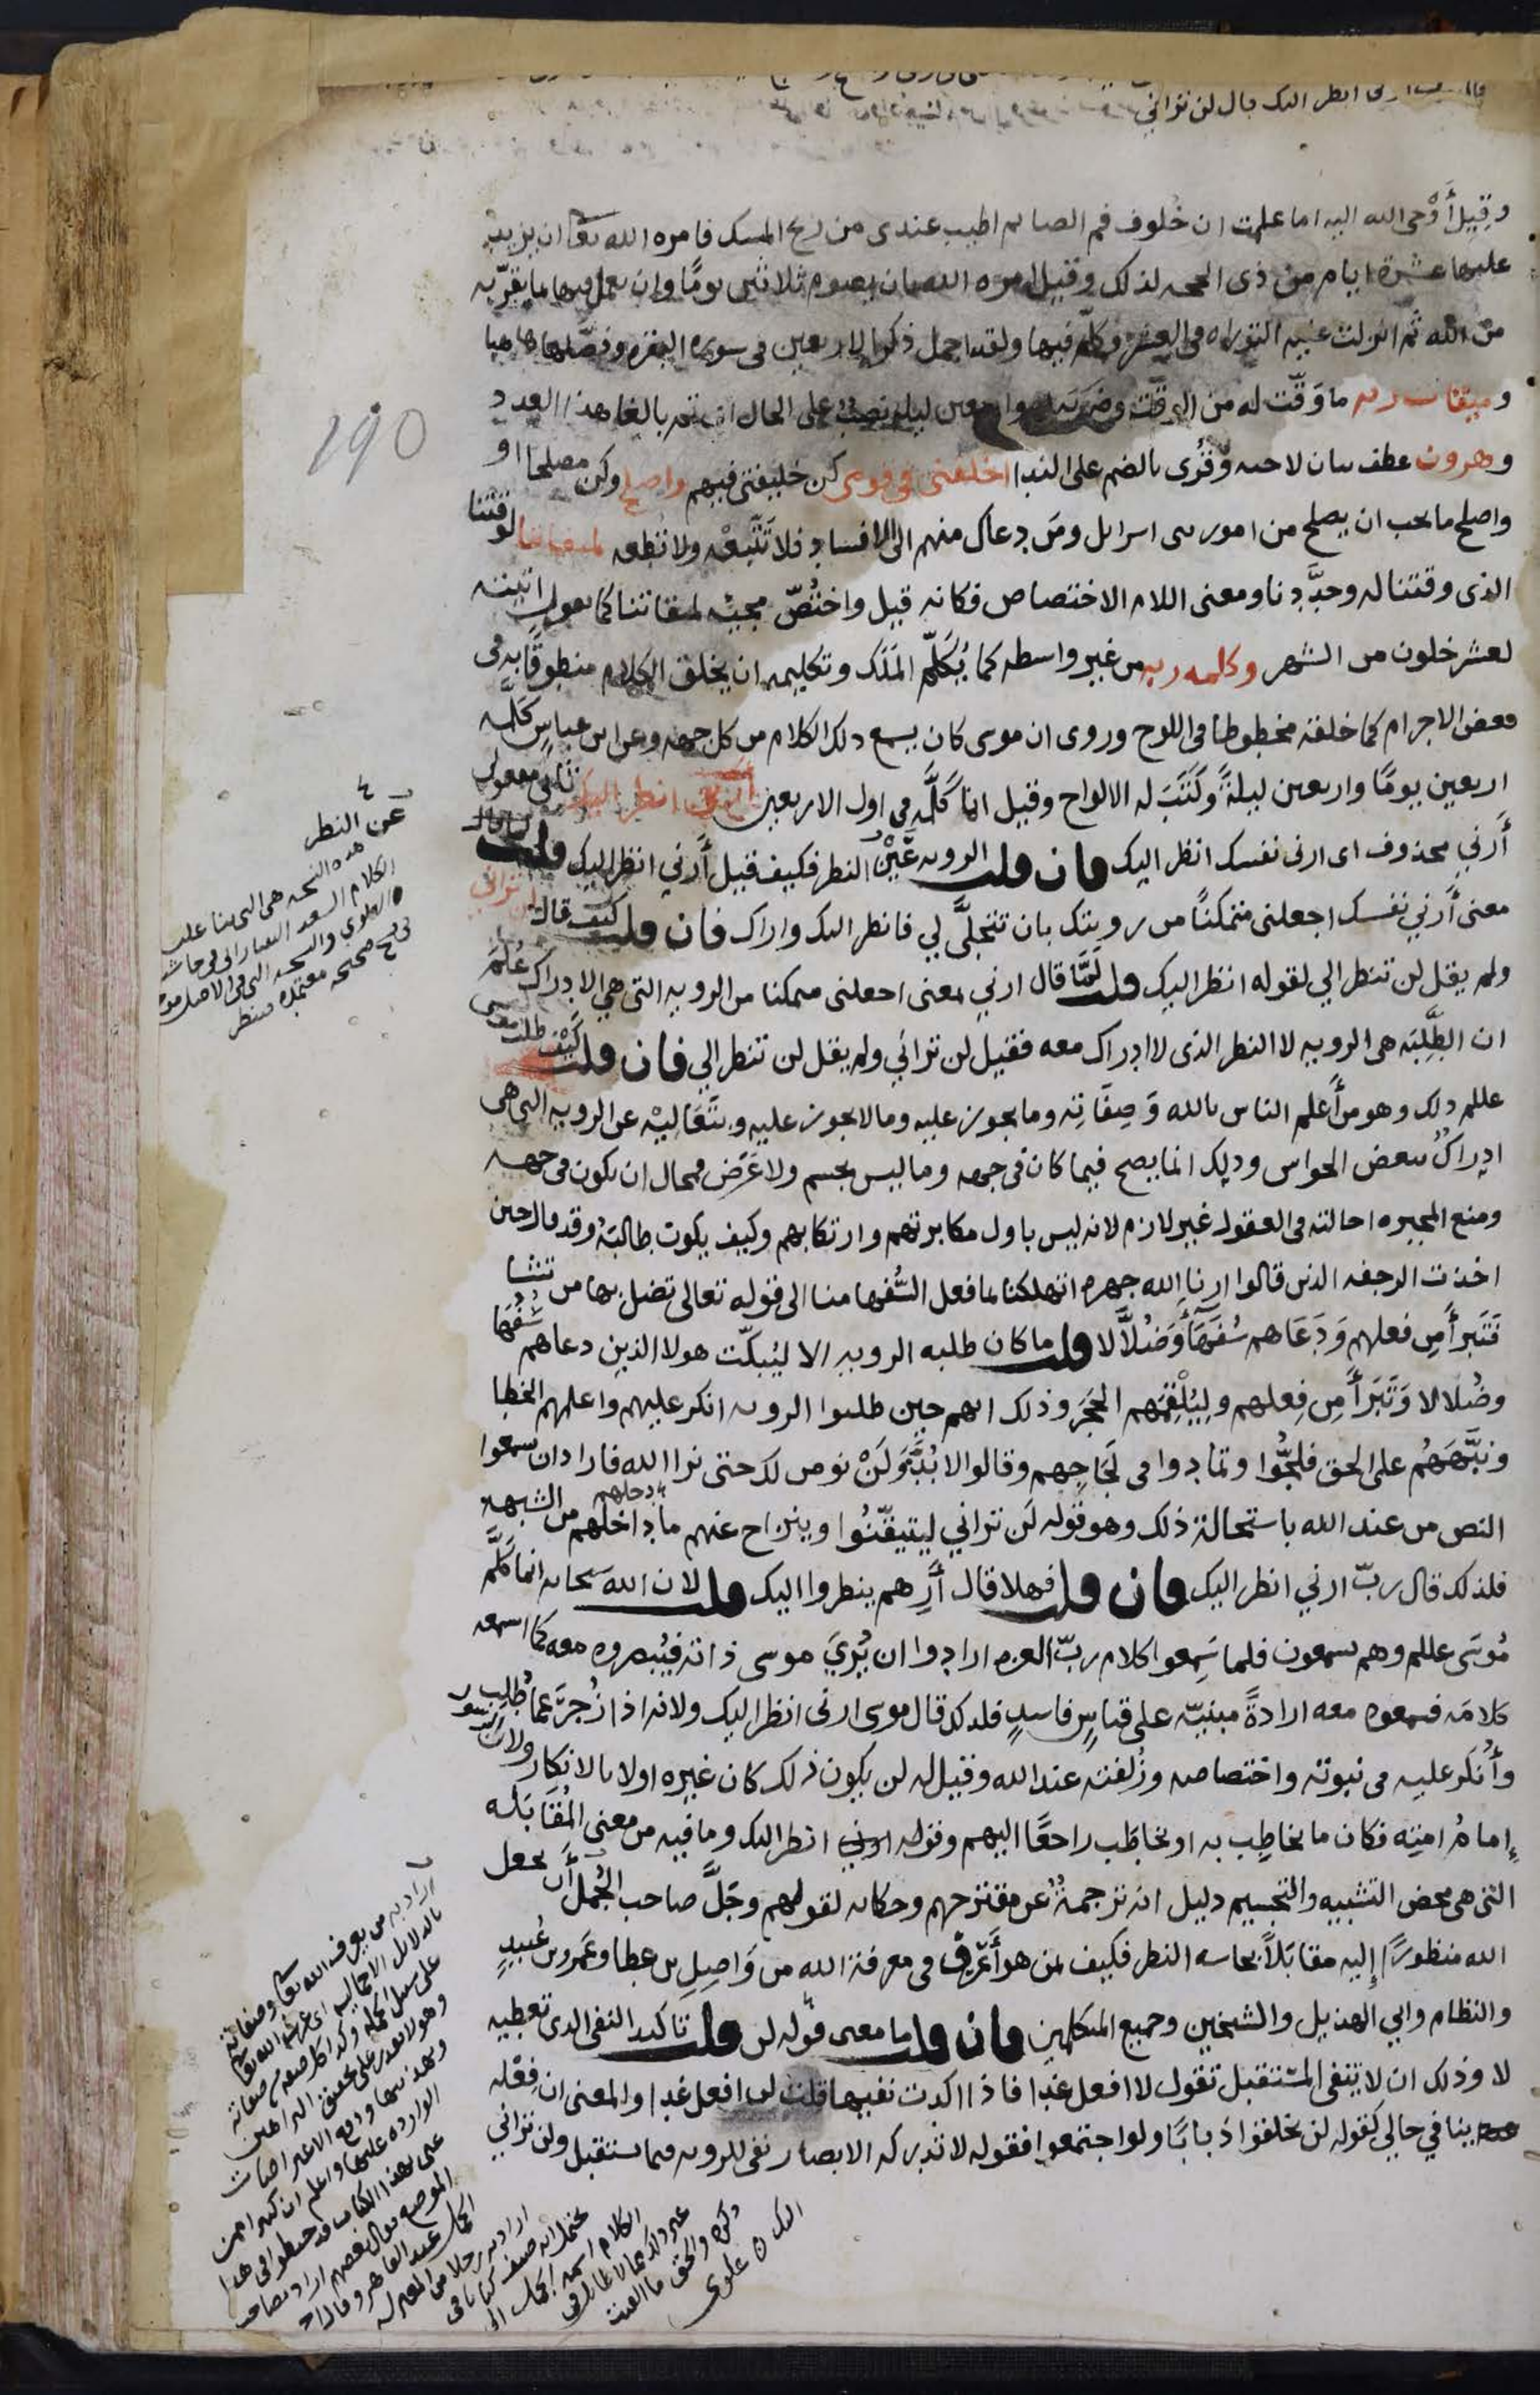 ارنى انظر اليك قال لن ترانى
وقيل أَوْحى الله اليه اما علمت ان خُلوف فم الصايم اطيب عندى من ريح المسك فامره الله تعا ان يزيد
عليها عشرة ايام من ذى الحجه لذلك وقيل امره الله بان يصوم ثلاثين يومًا وان يعمل فيها بما يقرّبه
من الله ثم انزلت عليه التوراه فى العشر وكلّم فيها ولقد اجمل ذكر الاربعين فى سورة البقره وفصّلها هاهنا
وميقات ربه ما وَقّت له من الوقت وضربه له واربعين ليله نصبٌ على الحال اى تم بالغا هذا العدد
وهرون عطف بيان لاخيه وقُرى بالضم على الندا اخلفنى فى قومى كن خليفتى فيهم واصلح وكن مصلحا او
واصلح ما يجب ان يصلح من امور بنى اسرايل ومَن دعاك منهم الى الافساد فلا تَتَّبعْه ولا تطعه لميقاتنا لوقتنا
الذى وقتنا له وحدَّدنا ومعنى اللام الاختصاص فكانه قيل واختُصّ مجيئه لميقاتنا كما تقول اتيته
لعشر خلون من الشهر وكلمه ربه من غير واسطه كما يُكَلّم المَلَك وتكليمه ان يخلق الكلام منطوقًا به فى
بعض الاجرام كما خلقه مخطوطا فى اللوح وروى ان موسى كان يسمع ذلك الكلام من كل جهه وعن ابن عباسٍ كلّمه
اربعين يومًا واربعين ليلةً وكَتَبَ له الالواح وقيل انما كلّمه فى اول الاربعين أَرنى انظر اليك ثانى مفعولى
أَرني محذوف اى ارنى نفسك انظر اليك فان قلت الرويه عَيْنُ النظر فكيف قيل أَرني انظر اليك قلت
معنى أَرني نفسك اجعلنى متمكنًا من رويتك بان تتجلَّى لي فانظر اليك واراك فان قلت كيف قال لن ترانى
ولم يقل لن تنظر الي لقوله انظر اليك قلت لَمَّا قال ارني بمعنى اجعلنى متمكنا من الرويه التى هي الادراك عُلِمَ
ان الطَّلِبَة هى الرويه لا النظر الذى لا ادراك معه فقيل لن ترانى ولم يقل لن تنظر الي فان قلت كَيْف طلب موسى
عللم ذلك وهو من أَعلم الناس بالله وَصِفَاتِه وما يجوز عليه وما لا يجوز عليه وبتَعَالِيْه عن الرويه التى هى
ادراكٌ ببعض الحواس وذلك انما يصح فيما كان فى جهه وما ليس بجسم ولا عَرَض فمحال ان يكون فى جهه
ومنع المجبره احالته فى العقول غير لازم لانه ليس باول مكابرتهم وارتكابهم وكيف يكون طالبَهُ وقد قال حين
اخذت الرجفه الذين قالوا ارنا الله جهره اتهلكنا بما فعل السُّفها منا الى قوله تعالى تضل بها من تشا
فَتَبرأَ مِن فعلهم وَدَعَاهم سُفَهَآءَ وَضُلَّالا قلت ما كان طلبه الرويه الا ليُبكّت هولا الذين دعاهم سُفَها
وضُلالا وَتَبَرأَ مِن فِعلهم ولِيُلْقِمَهم الحَجَر وذلك انهم حين طلبوا الرويه انكر عليهم واعلمهم الخطا
ونبَّهَهُم على الحق فلجُّوا وتمادوا فى لَجَاجِهم وقالوا لا بُدَّ وَلَنْ نومن لك حتى نرا الله فاراد ان يسمعوا
النص من عند الله باستحالة ذلك وهو قوله لَن ترانى ليتيقّنُوا وينزاح عنهم ما داخلهم من الشبهه
فلذلك قال ربّ ارني انظر اليك فان قلت فهلا قال أَرِهم ينظروا اليك قلت لان الله سبحانه انما كلَّم
مُوسَى عللم وهم يسمعون فلما سَمِعوا كلام ربّ العزه ارادوا ان يُرِيَ موسى ذاته فيُبصروه معه كما اسمعه
كلامَه فسمعوه معه ارادةً مبنيّه على قياسٍ فاسدٍ فلذلك قال موسى ارنى انظر اليك ولانه اذا زُجرَ عما طُلب
وأُنكر عليه فى نبوته واختصاصه وزُلفته عند الله وقيل له لن يكون ذلك كان غيره اولا بالانكار ولان الرسول
إمامُ امته فكان ما يخاطِب به او يخاطَب راجعًا اليهم وقوله انظر اليك وما فيه من معنى المُقَابَله
التى هى محض التشبيه والتجسيم دليل انه ترجمةٌ عن مقترحهم وحكايه لقولهم وجَلَّ صاحب الجُمل أن يجعل
الله منظورًا إليه مقابَلاً بحاسه النظر فكيف بمن هو أَعْرق فى معرفة الله من وَاصِلِ بن عطا وعَمرو بن عُبيدٍ
والنظام وابي الهذيل والشيخين وجميع المتكلمين فان قلت ما معنى قوله لن قلت تاكيد النفى الذى تعطيه
لا وذلك ان لا ينفى المستقبل تقول لا افعل غدا فاذا اكدت نفيها قلت لن افعل غدا والمعنى ان فعْله
ينافي حالى كقوله لن يخلقوا ذبابًا ولو اجتمعوا فقوله لا تدركه الابصار نفى للرويه فيما يستقبل ولن ترانى
290
عن النظر
هذه النسخه هى التى بنا عليها
الكلام السعد التفتازانى فى حاشيته
والعلوى والنسخه التى فى الاصل
صحيحه معتمده فينظر
اراد به من يعرف الله تعا وصفاته
بالدلايل الاجماليه
على سبيل الجمله
على تحقيق البراهين
ودفع الاعتراضات
الوارده عليها واعلم ان كثيرا ممن
الكلام اسمه الجمل
علوى